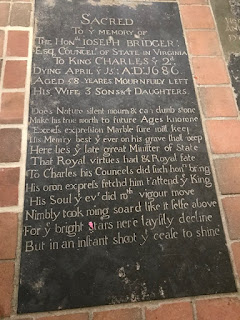 SACRED
To yͤ memory of
The Honᵇˡᵉ IOSEPH BRIDGER
Esqͬ Councelͬ of State in VIRGINIA
To KING CHARLES yͤ 2ᵈ
Dying APRIL yͤ 15: A:D:1686
AGED 58 YEARES MOURNFULLY LEFT
HIS WIFE, 3 SONSᵗ 4 DAUGHTERS.
Does Nature silent mourn & can dumb stone
Make his true worth to future Ages knowne
Excels expression Marble sure will keep
His Memry best yͤ ever on his grave shall weep
Here lies yͤ late great Minister of State
That Royal virtues had & Royal fate
To Charles his Councels did such honͬˢ bring
His own express fetchd him t'attend yͤ King
His Soul yͤ evͬ did wᵗʰ vigour move
Nimbly took wing soard like it selfe above
For yͤ bright stars nere laysily decline
But in an instant shoot yͤ cease to shine